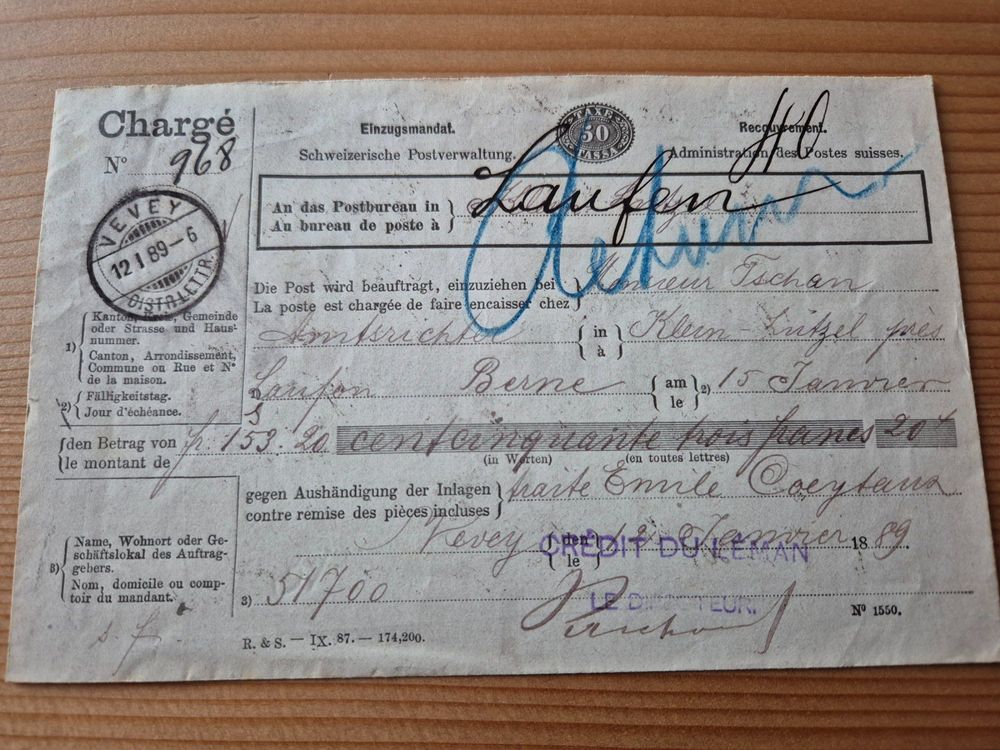 Chargé
N° 968
VEVEY
12 I 89-6
DISTR.LETTR.
Einzugsmandat.
Schweizerische Postverwaltung.
TAXE
50
TASSA
Recouvrement.
Administration des Postes suisses.
40
An das Postbureau in
Au bureau de poste à
Laufen
Retour
Die Post wird beauftragt, einzuziehen bei
La poste est chargée de faire encaisser chez
Monsieur Tschan
Amtsrichter in à Klein-Lützel près
Laufon Berne am le 2) 15 Janvier
1) Kanton, Kreis, Gemeinde oder Strasse und Haus-
nummer.
Canton, Arrondissement,
Commune ou Rue et N°
de la maison.
2) Fälligkeitstag.
Jour d'échéance.
den Betrag von
le montant de
fr. 153.20 cent cinquante trois francs 20
(in Worten) (en toutes lettres)
gegen Aushändigung der Inlagen
contre remise des pièces incluses
traite Emile Coeytaux
Vevey den le 12 Janvier 1889
CRÉDIT DU LÉMAN
LE DIRECTEUR.
3) Name, Wohnort oder Ge-
schäftslokal des Auftrag-
gebers.
Nom, domicile ou comp-
toir du mandant.
3) 51700
N° 1550.
R. & S. — IX. 87. — 174,200.